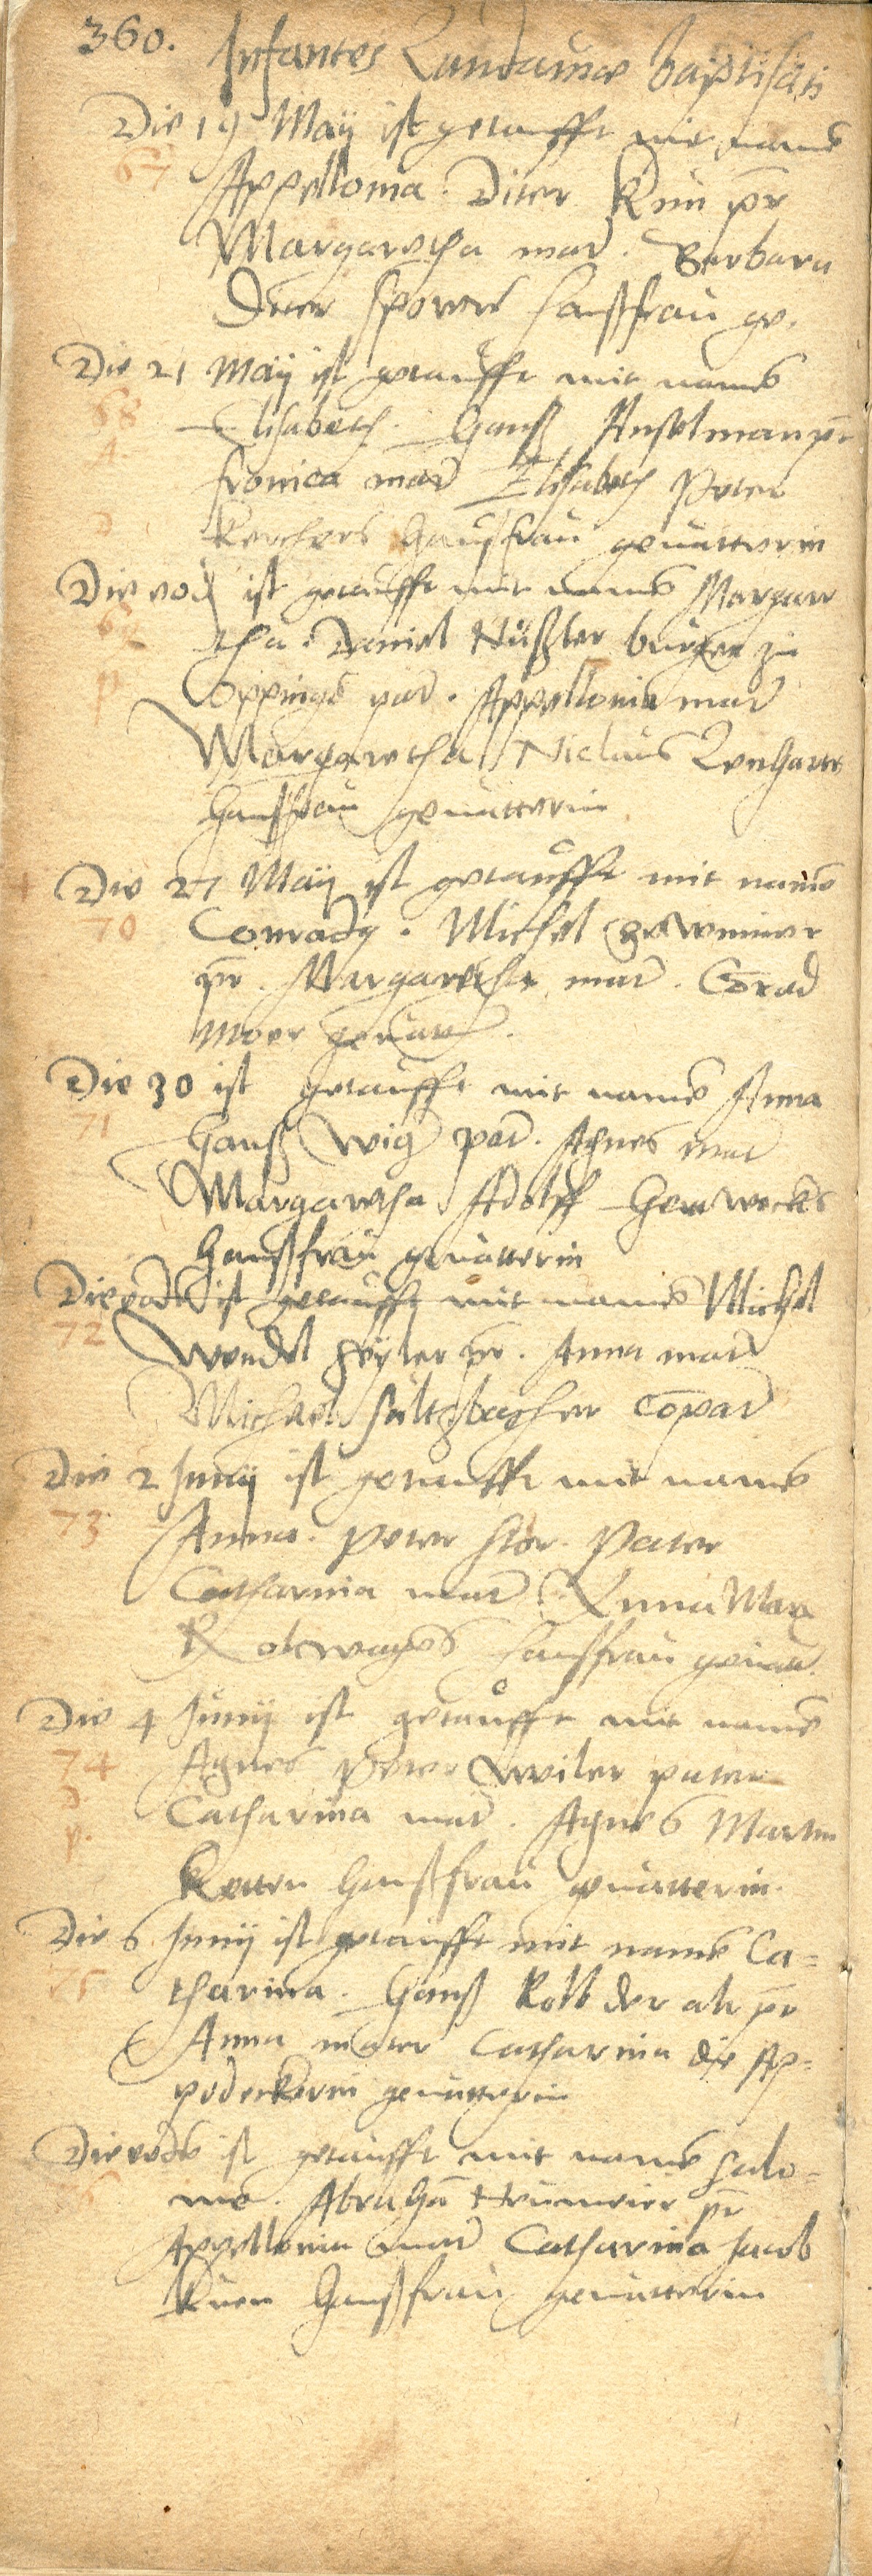 360. Infantes Landauiae baptisati
Die 19 Maij ist getaufft mit name
67
Appellonia. Diter Kun pr
Margaretha mad. Barbara
haußfrau ge.
Die 21 Maij ist getaufft mit name
68
A.
Elisabeth. Hanß Anselman pr
fronica mad Elisabeth Peter
d
Kerchers haußfrau geuatterin
Die eod ist getaufft mit name Margare
69
tha. Daniel Nüßler burger zu
p
Oppinge pad. Appellonia mad
Margaretha Niclaus Lenhartt
haußfrau geuatterin
Die 27 Maij ist getaufft mit name
70
Conrady. Michel
pr. Margaretha mad. Corad
Moer geuatt.
Die 30 ist getaufft mit name Anna
71
Hanß Wig pad. Agnes mad
Margaretha Adolff
haußfrau geuatterin
Die eode ist getaufft mit name Michel
72
Wendel Seyler pr. Anna mad
Michael Saltzbacher Copad
Die 2 Junij ist getaufft mit name
73
Anna. Peter Pater
Catharina mad Anna Max
haußfrau geuatt.
Die 4 Junij ist getaufft mit name
74
Agnes Peter Wiler pater
d.
Catharina mad. Agnes Martin
p.
Ketten haußfrau geuatterin.
Die 6 Junij ist getaufft mit name Ca=
75
tharina. Hanß Kolb der alt pr
Anna mater Catharina die Ap=
podeckerin geuatterin
Die eode ist getaufft mit name Salo=
76
me. Abraha Neumeier pr
Appellonia mad Catharina Jacob
Kuen haußfrau geuatterin